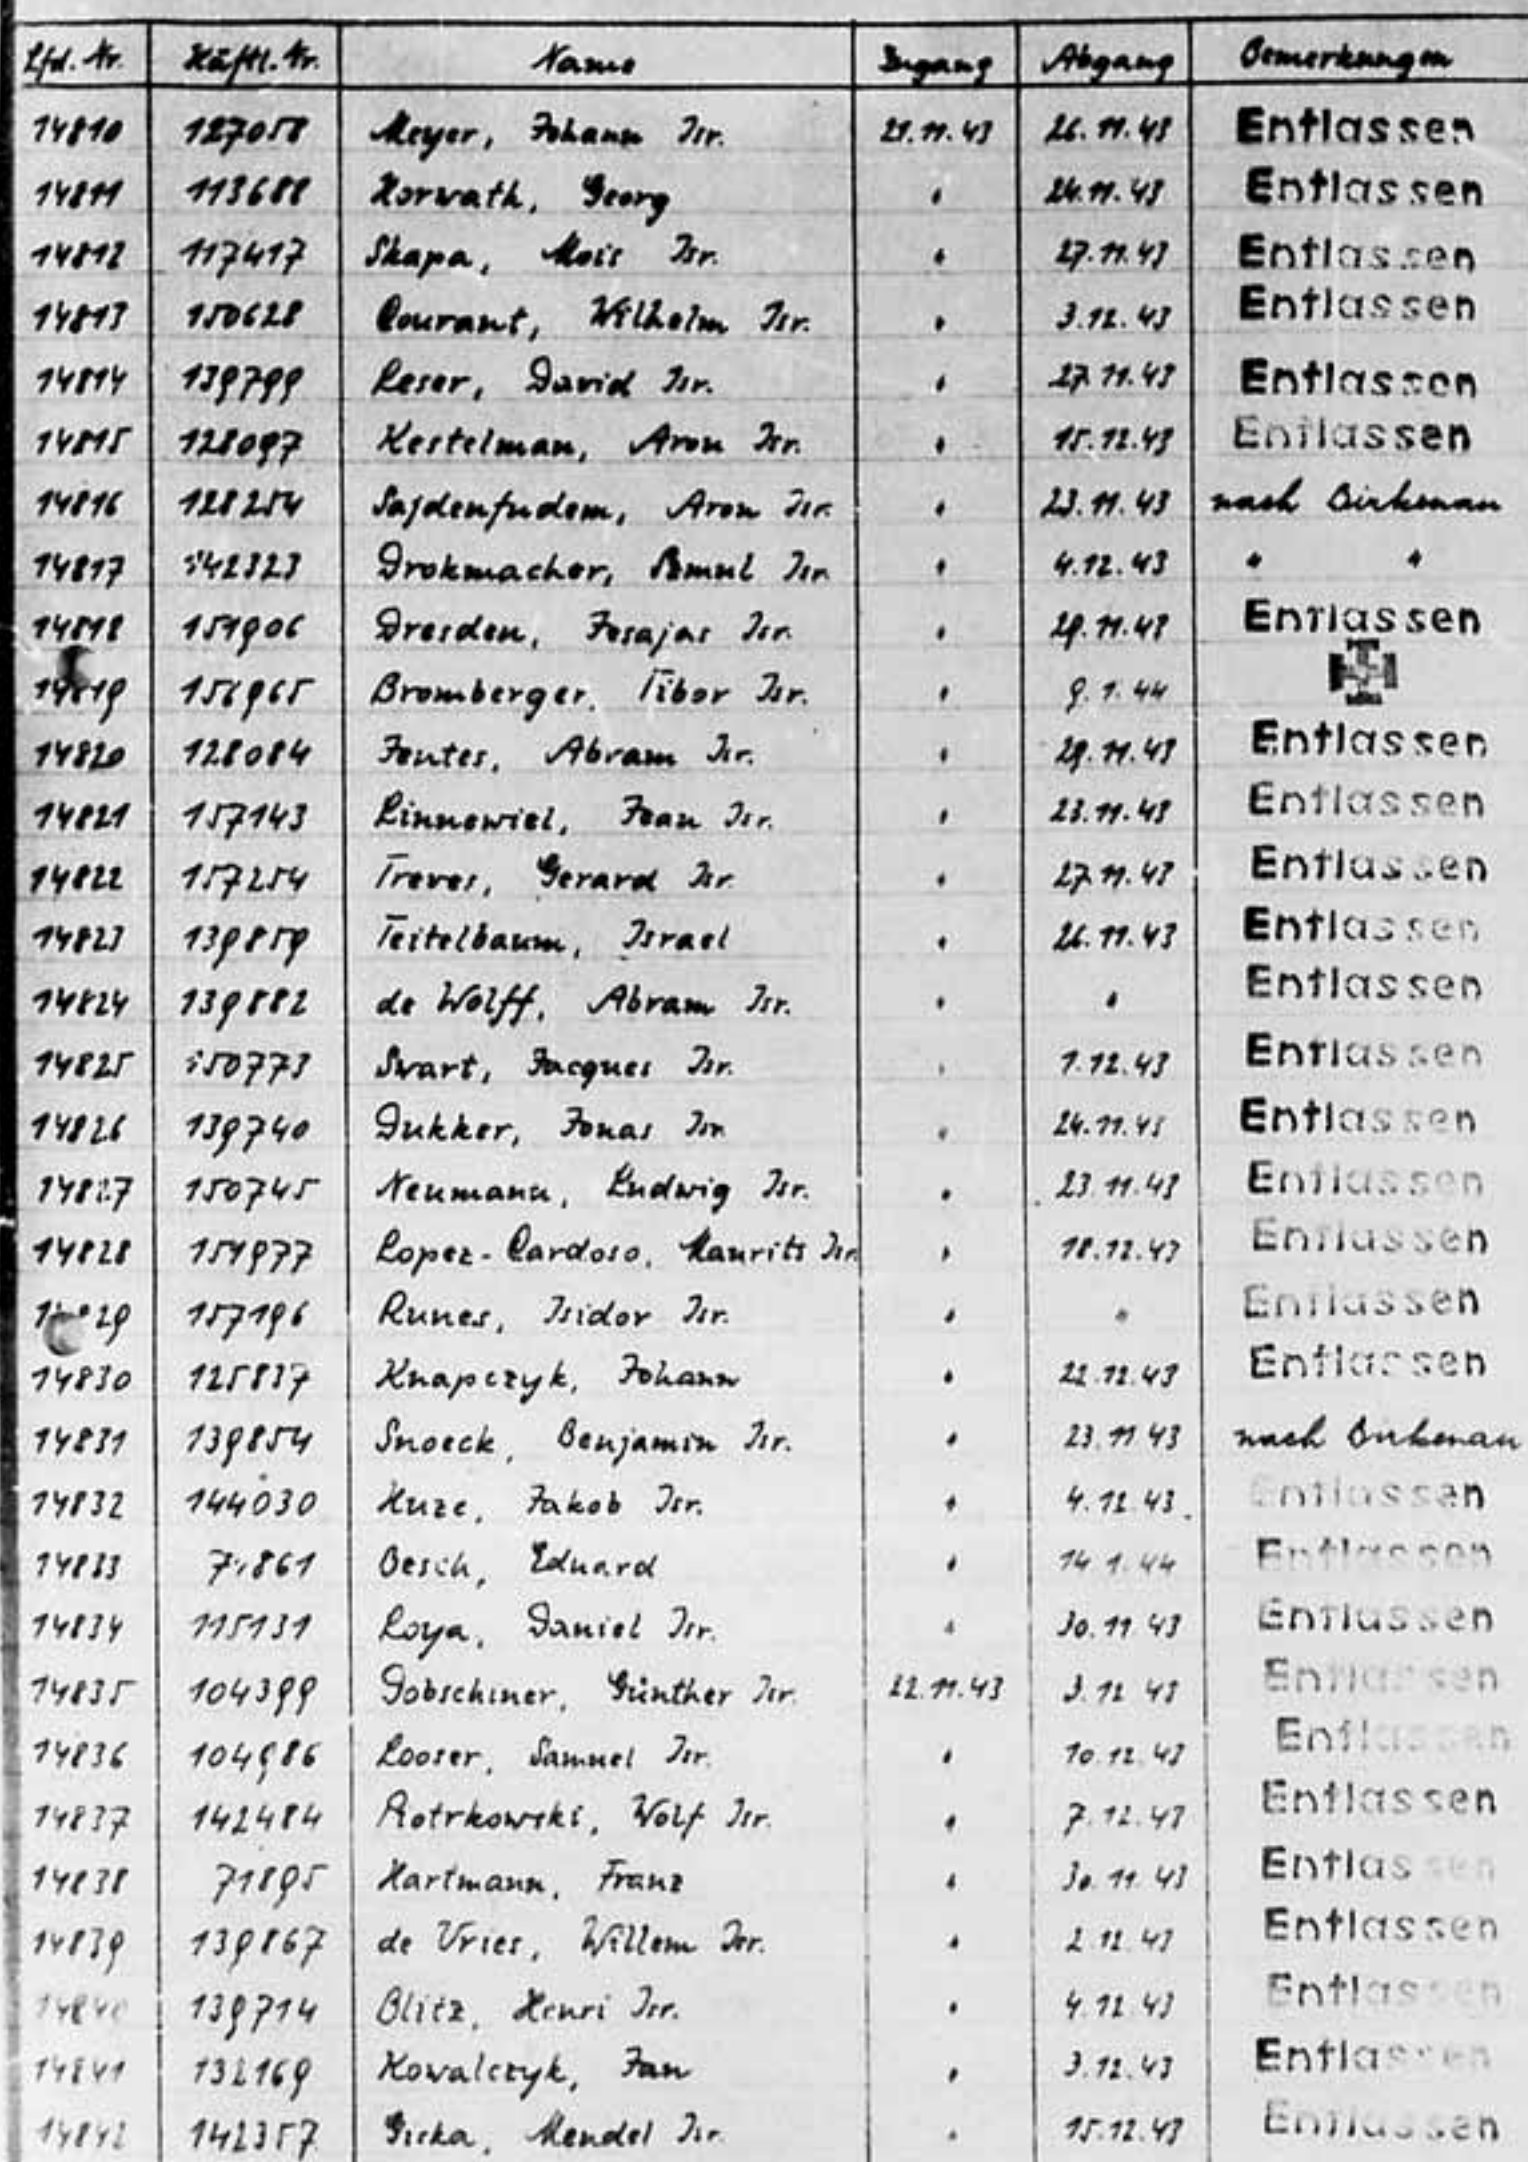 Lfd. Nr. Häftl. Nr. Name Zugang Abgang Bemerkungen
14810 127058 Meyer, Johann Isr. 21.11.43 26.11.43 Entlassen
14811 113688 Horwath, Georg " 24.11.43 Entlassen
14812 117417 Skapa, Alois Isr. " 27.11.43 Entlassen
14813 150628 Courant, Wilhelm Isr. " 3.12.43 Entlassen
14814 139799 Leser, David Isr. " 27.11.43 Entlassen
14815 128097 Kestelman, Aron Isr. " 15.12.43 Entlassen
14816 128254 Sajdenfudem, Aron Isr. " 23.11.43 nach Birkenau
14817 142323 Drokmacher, Isr. " 4.12.43 " "
14818 151906 Dresden, Jesajas Isr. " 29.11.43 Entlassen
14819 156965 Bromberger, Tibor Isr. " 9.1.44
14820 128084 Jentes, Abram Isr. " 29.11.43 Entlassen
14821 157143 Linnewiel, Jean Isr. " 23.11.43 Entlassen
14822 157254 Treves, Gerard Isr. " 27.11.43 Entlassen
14823 139859 Teitelbaum, Israel " 26.11.43 Entlassen
14824 139882 de Wolff, Abram Isr. " " Entlassen
14825 150773 Swart, Jacques Isr. " 1.12.43 Entlassen
14826 139740 Dukker, Jonas Isr. " 24.11.43 Entlassen
14827 150745 Neumann, Ludwig Isr. " 23.11.43 Entlassen
14828 151977 Lopez-Cardoso, Maurits Isr. " 18.12.43 Entlassen
14829 157196 Runes, Isidor Isr. " " Entlassen
14830 125837 Knapczyk, Johann " 22.12.43 Entlassen
14831 139854 Snoeck, Benjamin Isr. " 23.11.43 nach Birkenau
14832 144030 Huze, Jakob Isr. " 4.12.43 Entlassen
14833 Oesch, Eduard " 14.1.44 Entlassen
14834 115131 Roya, Daniel Isr. " 30.11.43 Entlassen
14835 104399 Dobschiner, Günther Isr. 22.11.43 3.12.43 Entlassen
14836 104986 Looser, Samuel Isr. " 10.12.43 Entlassen
14837 142484 Piotrkowski, Wolf Isr. " 7.12.43 Entlassen
14838 71895 Hartmann, Franz " 30.11.43 Entlassen
14839 139867 de Vries, Willem Isr. " 2.12.43 Entlassen
14840 139714 Blitz, Henri Isr. " 4.12.43 Entlassen
14841 132169 Kowalczyk, Jan " 3.12.43 Entlassen
14842 142357 Mendel Isr. " 15.12.43 Entlassen